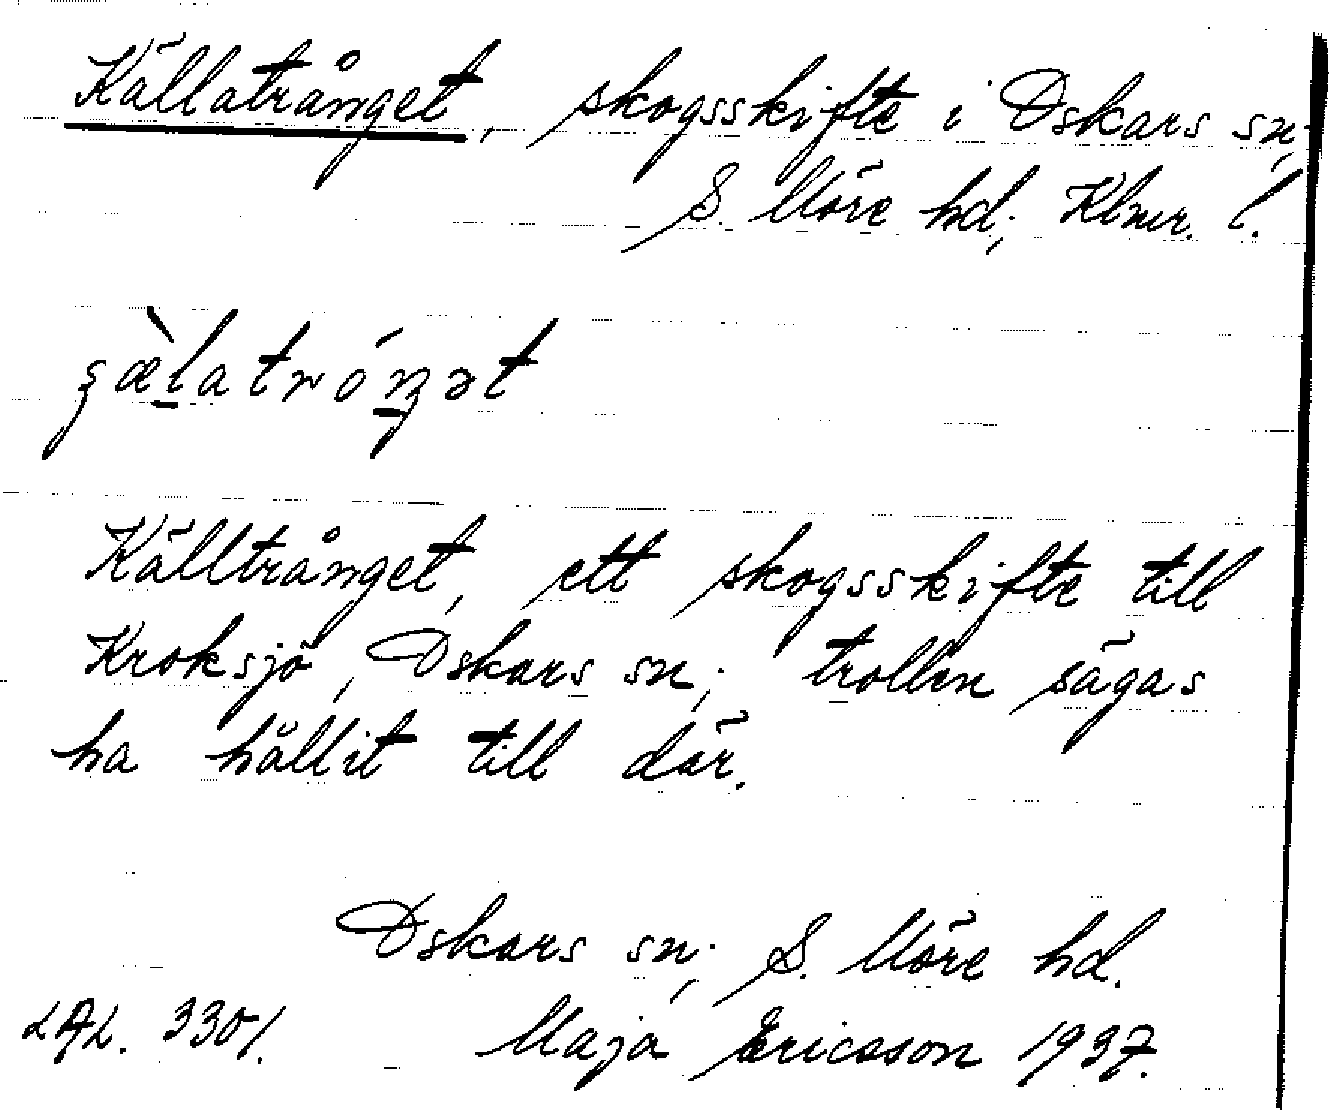 Källatrånget, skogsskifte i Oskars sn,
S. Möre hd; Klmr. l.
Källtrånget, ett skogsskifte till
Kroksjö, Oskars sn; trollen sägas
ha hållit till där.
Oskars sn; S. Möre hd.
LAL. 3301. Maja Ericsson 1937.